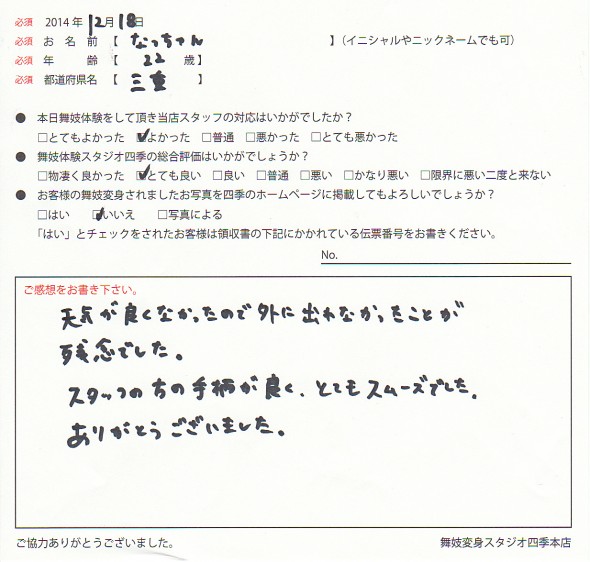 必須 2014年 12月 18日
必須 お名前【 なっちゃん 】(イニシャルやニックネームでも可)
必須 年齢【 22 歳】
必須 都道府県名【 三重 】
● 本日舞妓体験をして頂き当店スタッフの対応はいかがでしたか?
□とてもよかった ☑よかった □普通 □悪かった □とても悪かった
● 舞妓体験スタジオ四季の総合評価はいかがでしょうか?
□物凄く良かった ☑とても良い □良い □普通 □悪い □かなり悪い □限界に悪い二度と来ない
● お客様の舞妓変身されましたお写真を四季のホームページに掲載してもよろしいでしょうか?
□はい ☑いいえ □写真による
「はい」とチェックをされたお客様は領収書の下記にかかれている伝票番号をお書きください。
No.
ご感想をお書き下さい。
天気が良くなかったので外に出れなかったことが
残念でした。
スタッフの方の手柄が良く、とてもスムーズでした。
ありがとうございました。
ご協力ありがとうございました。 舞妓変身スタジオ四季本店